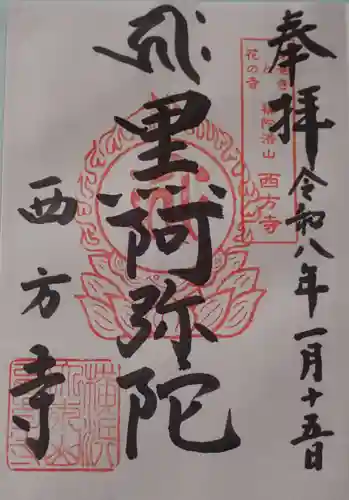 奉拝
令和八年一月十五日
花の寺
補陀洛山 西方寺
黒阿弥陀
西方寺